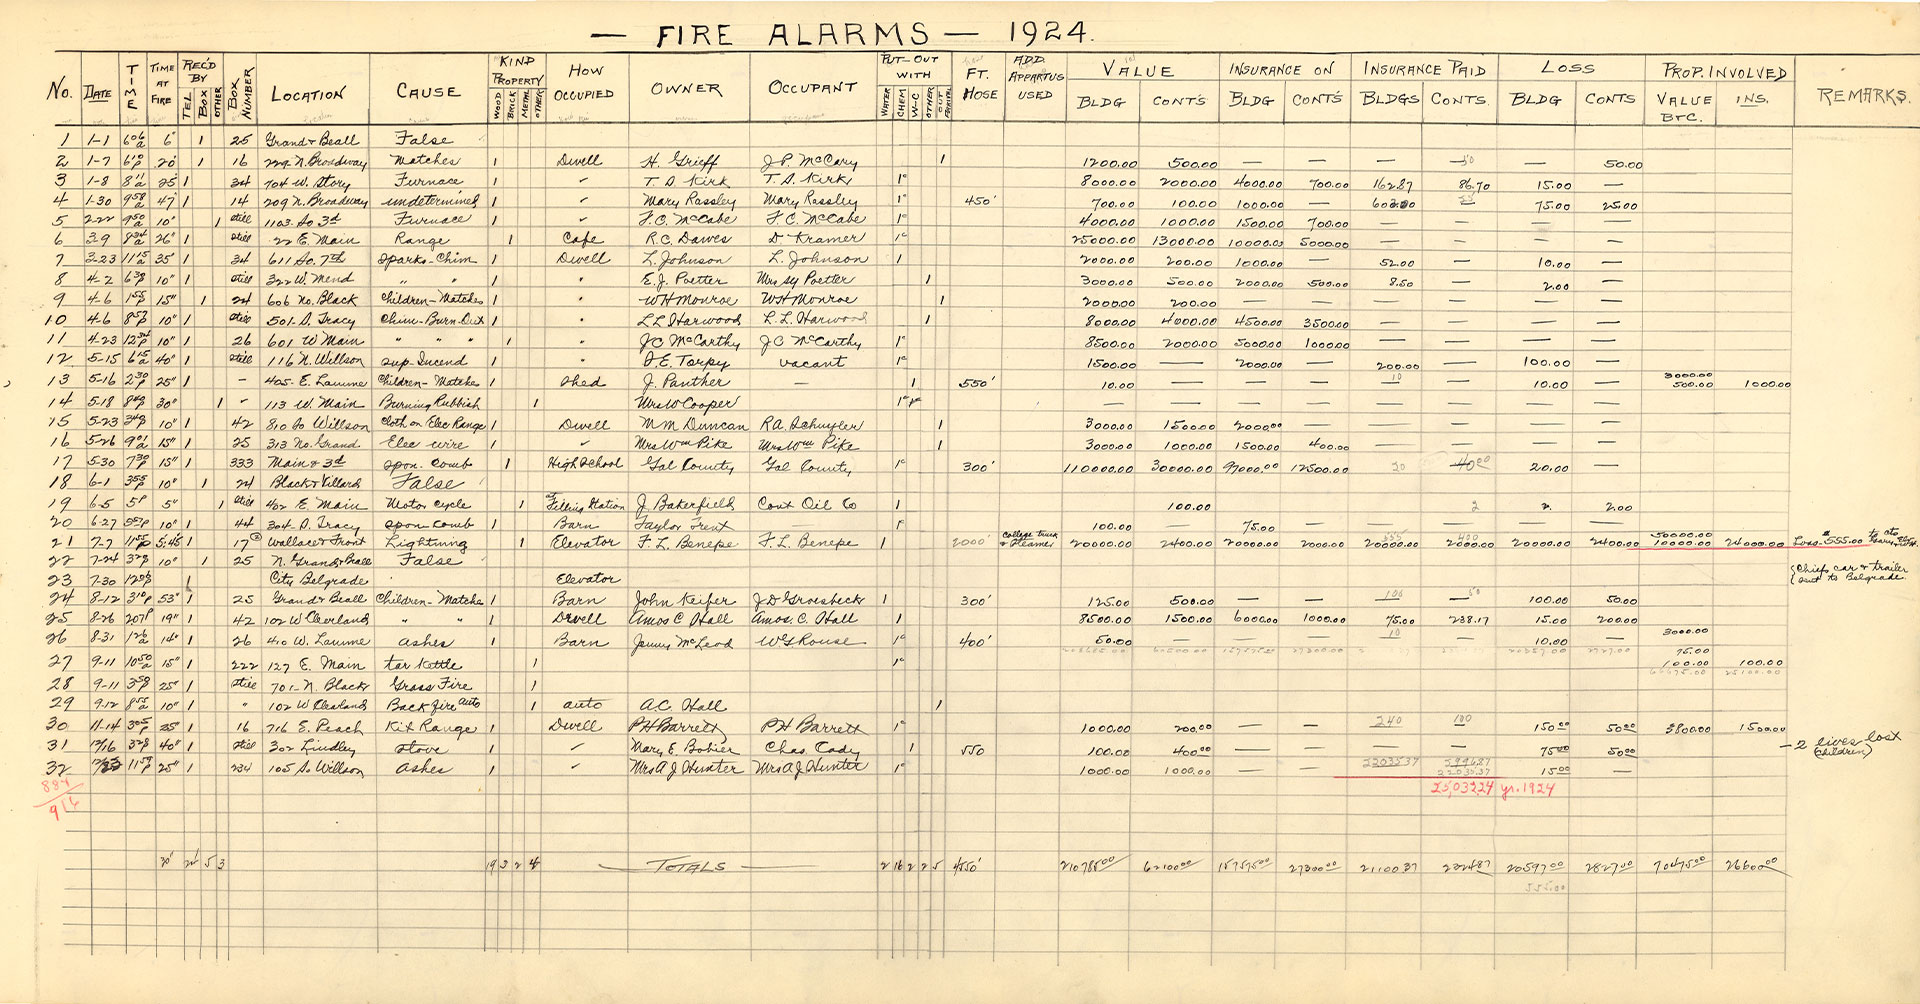 — FIRE ALARMS — 1924.
No. DATE TIME TIME AT FIRE REC'D BY TEL BOX OTHER BOX NUMBER LOCATION CAUSE KIND PROPERTY WOOD BRICK METAL OTHER HOW OCCUPIED OWNER OCCUPANT PUT-OUT WITH WATER CHEM W-C OTHER OUT FT. HOSE ADD. APPARTUS USED VALUE BLDG CONT'S INSURANCE ON BLDG CONT'S INSURANCE PAID BLDGS CONTS. LOSS BLDG CONTS PROP. INVOLVED VALUE B+C. INS. REMARKS.
1 1-1 6 06 a 6" 1 25 Grand & Beall False
2 1-7 20" 1 16 229 N. Broadway Matches 1 Dwell H. Grieff J.P. McCary 1 1200.00 500.00 — — — 50 — 50.00
3 1-8 8 11 a 25" 1 34 704 W. Story Furnace 1 " T. S. Kirk T. S. Kirk 1c 8000.00 2000.00 4000.00 700.00 162.87 86.70 15.00 —
4 1-30 9 58 a 47" 1 14 209 N. Broadway undetermined 1 " Mary Rassley Mary Rassley 1c 450' 700.00 100.00 1000.00 — — 75.00 25.00
5 2-22 9 50 a 10" 1 still 1103 So 3rd Furnace 1 " F.C. McCabe F.C. McCabe 1c 4000.00 1000.00 1500.00 700.00 — — — —
6 3-9 8 34 a 26" 1 still 22 E. Main Range 1 Cafe R.C. Dawes D. Kramer 1c 25000.00 13000.00 10000.00 5000.00 — — — —
7 3-23 11 15 a 35" 1 34 611 So. 7th Sparks-Chim 1 Dwell L. Johnson L. Johnson 1 2000.00 200.00 1000.00 — 52.00 — 10.00 —
8 4-2 6 38 p 10" 1 still 322 W. Mend " " 1 " E. J. Poetter Mrs Sy Poetter 1 3000.00 500.00 2000.00 500.00 8.50 — 2.00 —
9 4-6 1 55 p 15" 1 24 606 No. Black Children-Matches 1 " W H Monroe W H Monroe 1 2000.00 200.00 — — — — — —
10 4-6 8 53 p 10" 1 still 501-S. Tracy Chim-Burn-Out 1 " L L Harwood L. L. Harwood 1 8000.00 4000.00 4500.00 3500.00 — — — —
11 4-23 12 34 p 10" 1 26 601 W Main " " " 1 " J C McCarthy J C McCarthy 1c 8500.00 2000.00 5000.00 1000.00 — — — —
12 5-15 6 15 a 40" 1 still 116 N. Willson sup-Incend 1 " D. E. Torpy vacant 1c 1500.00 — 2000.00 — 200.00 — 100.00 —
13 5-16 2 30 p 25" 1 — 405- E. Lamme Children-Matches 1 Shed J. Panther — 1 550' 10.00 — — — 10 — — 10.00 — 3000.00 500.00 1000.00
14 5-18 8 40 p 30" 1 " 113 W. Main Burning Rubbish 1 Mrs W Cooper — — — — — — — —
15 5-23 3 40 p 10" 1 42 810 So Willson Cloth on Elec Range 1 Dwell M M Duncan R.A. Schuyler 1 3000.00 1500.00 2000.00 — — — — —
16 5-26 9 01 a 15" 1 25 313 No. Grand Elec wire 1 " Mrs Wm Pike Mrs Wm Pike 1 3000.00 1000.00 1500.00 400.00 — — — —
17 5-30 7 30 p 15" 1 333 Main & 3rd spon. comb 1 High School Gal County Gal County 1c 300' 110000.00 30000.00 97000.00 12500.00 20 40.00 20.00 —
18 6-1 3 55 p 10" 1 24 Black & Villard False
19 6-5 5 p 5" 1 still 402 E. Main Motor cycle 1 Filling Station J. Bakerfield Cont Oil Co 1 100.00 2 2. 2.00
20 6-27 10" 1 44 304 S. Tracy spon-comb 1 Barn Taylor Trent — 1c 100.00 — 75.00 — — — — —
21 7-7 11 55 p 5:45" 1 17 Wallace & Front Lightning 1 Elevator F. L. Benepe F. L. Benepe 1 2000' College truck & Steamer 20000.00 2400.00 20000.00 2000.00 20000.00 2000.00 20000.00 2400.00 50000.00 10000.00 24000.00 Loss $555.00 to cto
22 7-24 10" 1 25 N. Grand & Beall False
23 7-30 1 City Belgrade Elevator {Chiefs car & trailer sent to Belgrade
24 8-12 3 10 p 53" 1 25 Grand & Beall Children-Matches 1 Barn John Keifer J D Groesbeck 1 300' 125.00 500.00 — — 100 — 50 — 100.00 50.00
25 8-26 2 07 p 19" 1 42 102 W Cleverland " " 1 Dwell Amos C Hall Amos. C. Hall 1 8500.00 1500.00 6000.00 1000.00 75.00 238.17 15.00 200.00
26 8-31 14" 1 26 410 W. Lamme ashes 1 Barn Jenny McLeod W S Rouse 1c 400' 50.00 — — — 10 — — 10.00 — 3000.00 75.00
27 9-11 10 50 a 15" 1 222 127 E. Main tar kettle 1 1c 100.00 100.00
28 9-11 3 50 p 25" 1 still 701-N. Black Grass Fire 1
29 9-12 8 55 a 10" 1 " 102 W Cleverland Back fire auto 1 auto A.C. Hall 1
30 11-14 3 05 p 25" 1 16 716 E. Peach Kit Range 1 Dwell P H Barrett P H Barrett 1c 1000.00 200.00 — — 240 100 150.00 50.00 3800.00 1500.00
31 12/16 3 28 p 40" 1 still 302 Lindley stove 1 " Mary E Bohier Chas. Cady 1 550 100.00 400.00 — — — — 75.00 50.00 -2 lives lost (Children)
32 12/23 11 59 p 25" 1 234 105 S. Willson Ashes 1 " Mrs A J Hunter Mrs A J Hunter 1c 1000.00 1000.00 15.00 —
884
916
25,032.24 yr. 1924
5 3 19 3 2 4 — TOTALS — 2 16 2 2 5 4550' 210785.00 62100.00 157575.00 27300.00 21100.37 2324.87 20597.00 2827.00 70475.00 26600.00
555.00